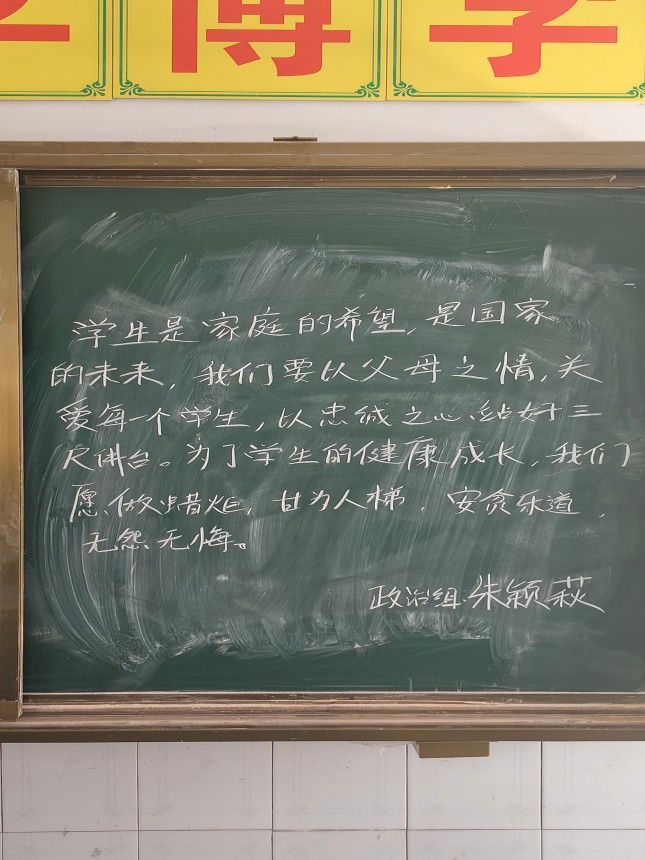 博学
学生是家庭的希望,是国家
的未来,我们要以父母之情,关
爱每一个学生,以忠诚之心站好三
尺讲台。为了学生的健康成长,我们
愿做蜡炬,甘为人梯,安贫乐道,
无怨无悔。
政治组·朱颖萩